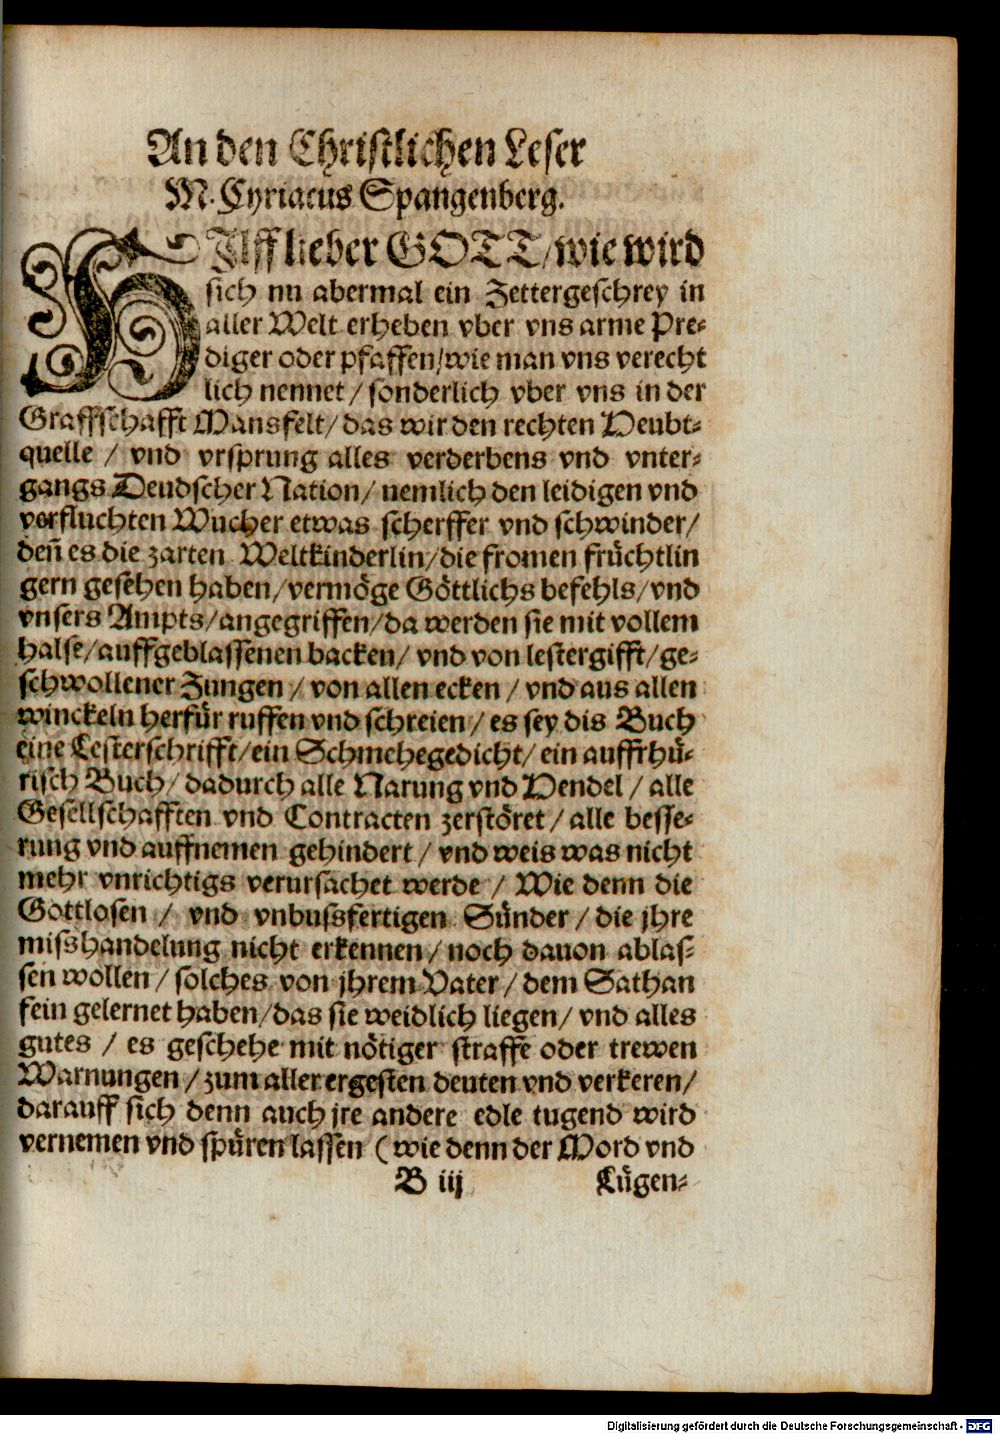 An den Christlichen Leser
M. Cyriacus Spangenberg.
HIlff lieber GOTT / wie wird
sich nu abermal ein Zettergeschrey in
aller Welt erheben vber vns arme Pre-
diger oder pfaffen / wie man vns verecht
lich nennet / sonderlich vber vns in der
Graffschafft Mansfelt / das wir den rechten Heubt-
quelle / vnd vrsprung alles verderbens vnd vnter-
gangs Deudscher Nation / nemlich den leidigen vnd
verfluchten Wucher etwas scherffer vnd schwinder /
deñ es die zarten Weltkinderlin / die fromen früchtlin
gern gesehen haben / vermöge Göttlichs befehls / vnd
vnsers Ampts / angegriffen / da werden sie mit vollem
halse / auffgeblassenen backen / vnd von lestergifft / ge-
schwollener Zungen / von allen ecken / vnd aus allen
winckeln herfür ruffen vnd schreien / es sey dis Buch
eine Lesterschrifft / ein Schmehegedicht / ein auffrhü-
risch Buch / dadurch alle Narung vnd Hendel / alle
Gesellschafften vnd Contracten zerstöret / alle besse-
rung vnd auffnemen gehindert / vnd weis was nicht
mehr vnrichtigs verursachet werde / Wie denn die
Gottlosen / vnd vnbußfertigen Sünder / die jhre
mißhandelung nicht erkennen / noch dauon ablas-
sen wollen / solches von jhrem Vater / dem Sathan
fein gelernet haben / das sie weidlich liegen / vnd alles
gutes / es geschehe mit nötiger straffe oder trewen
Warnungen / zum aller ergesten deuten vnd verkeren /
darauff sich denn auch jre andere edle tugend wird
vernemen vnd spüren lassen (wie denn der Mord vnd
B iij
Lügen-
Digitalisierung gefördert durch die Deutsche Forschungsgemeinschaft - DFG